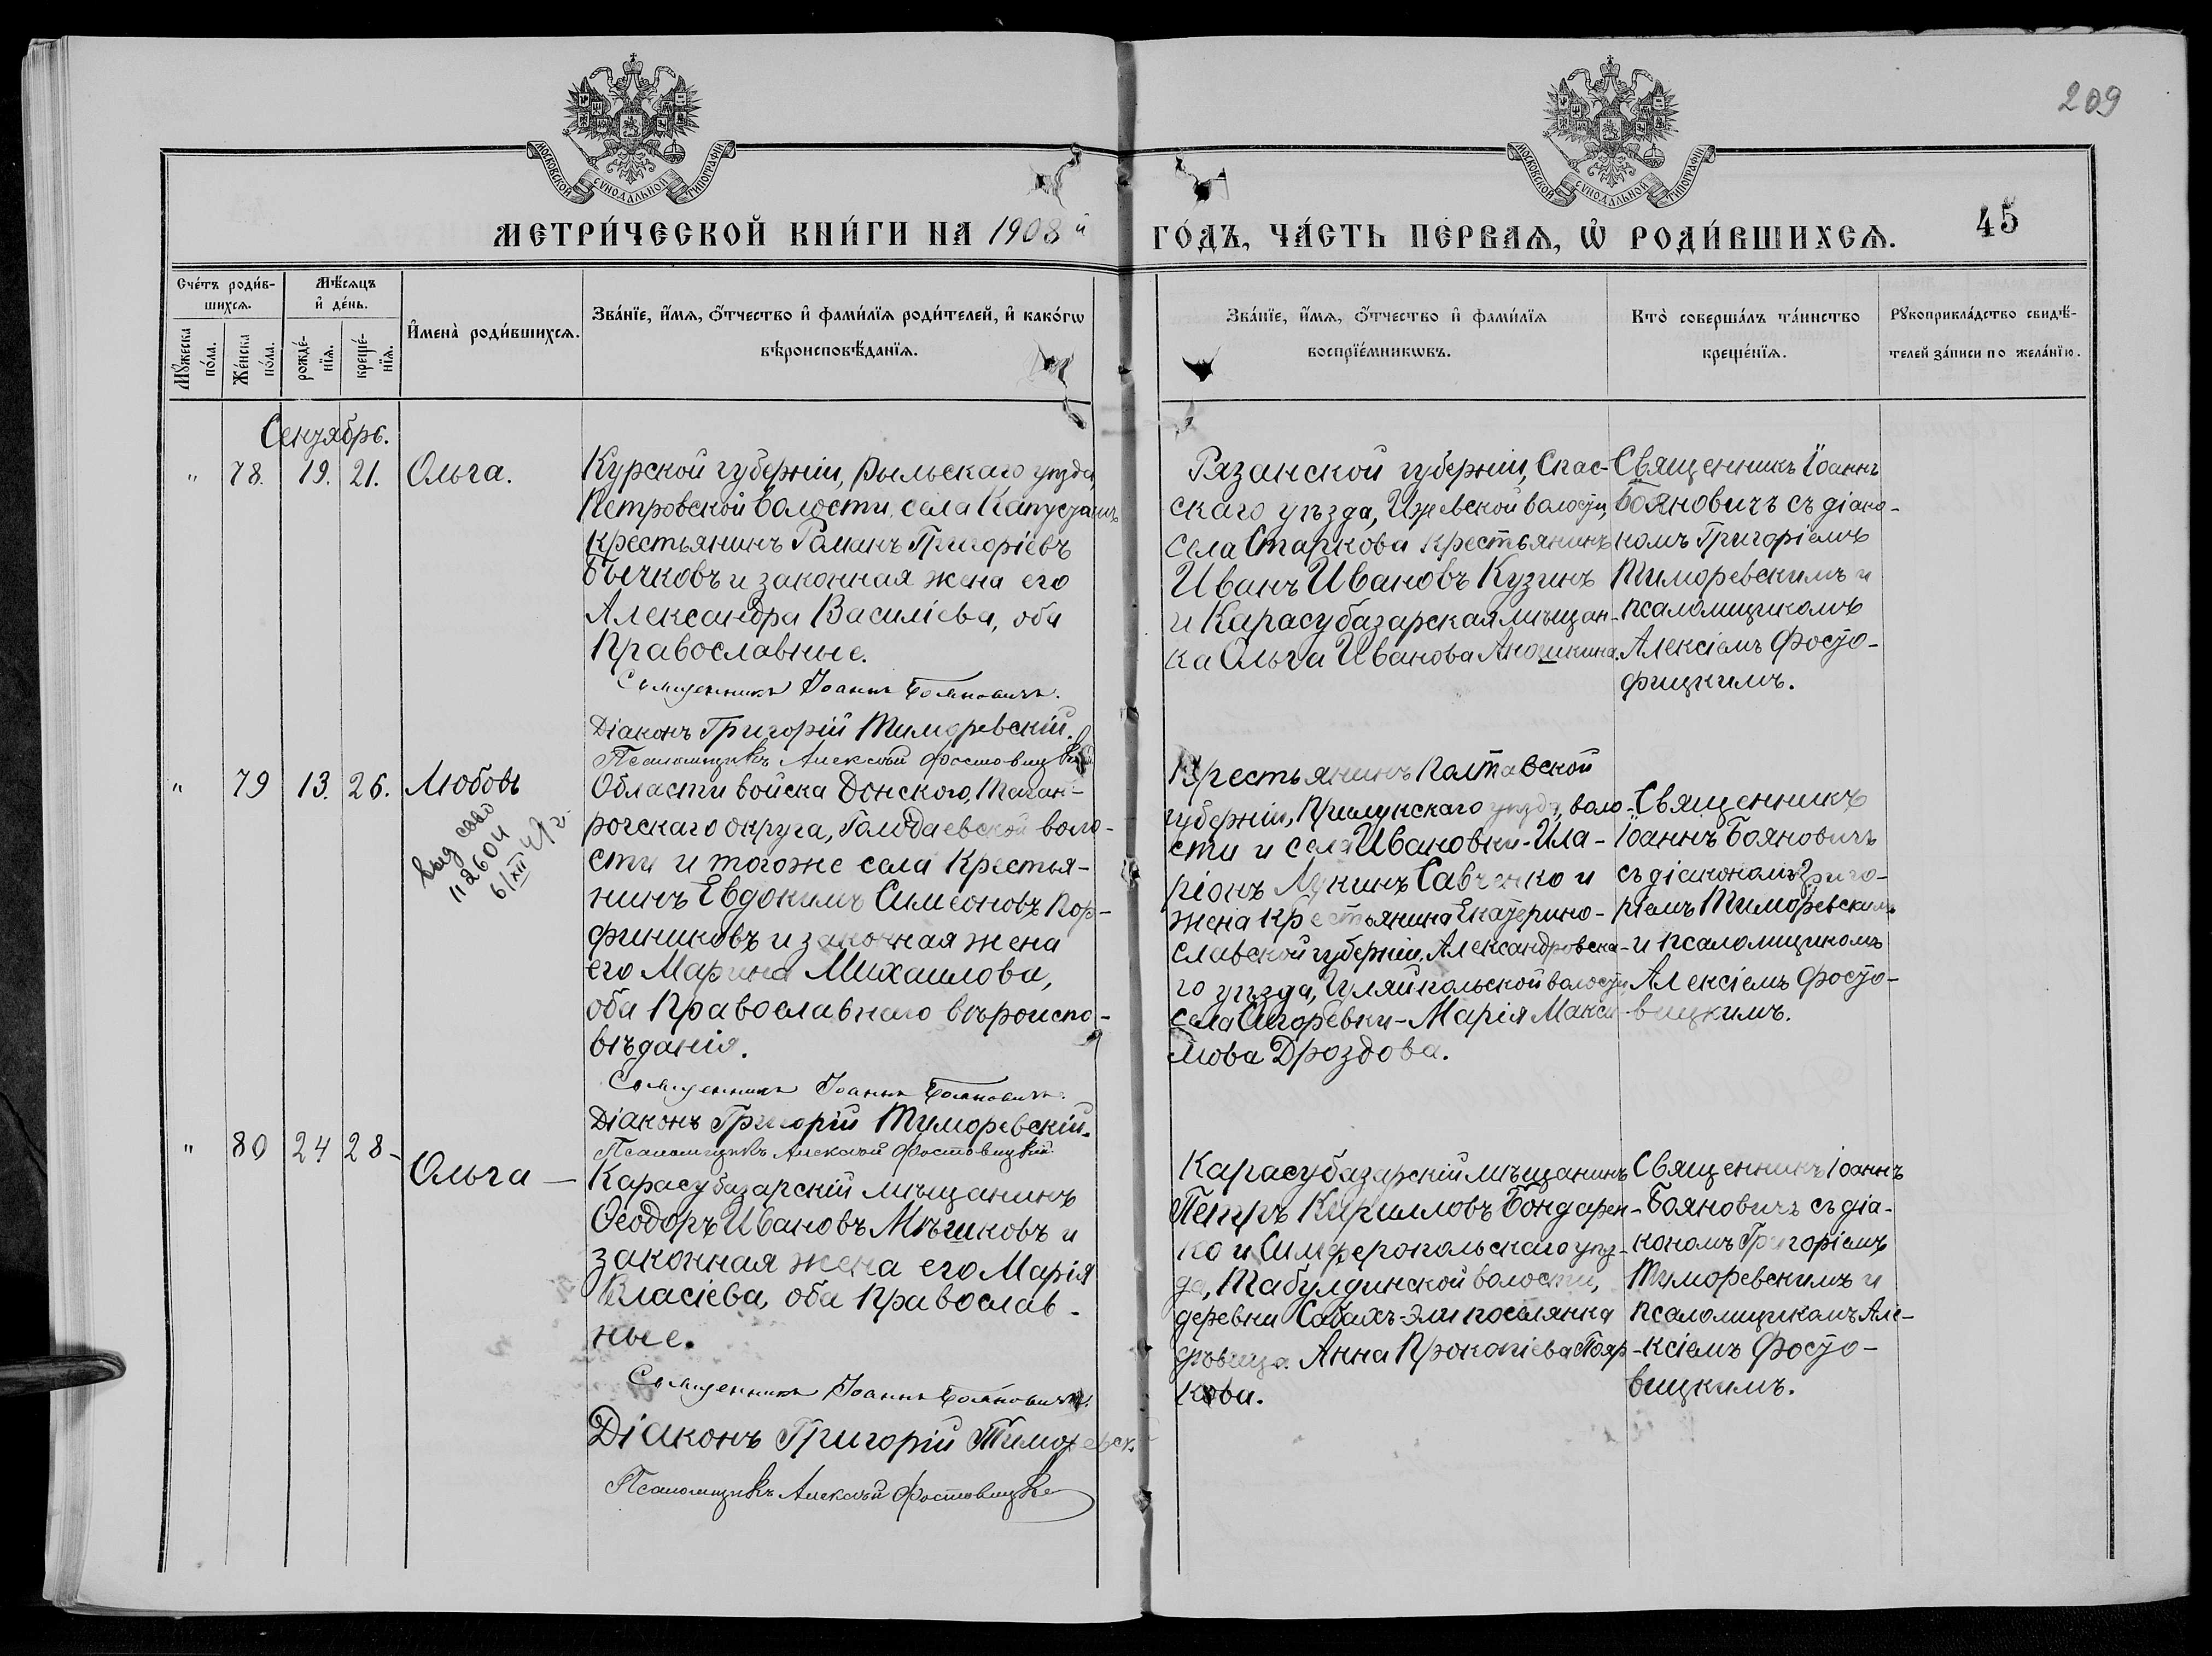 209
МОСКОВСКОЙ СѴНОДАЛЬНОЙ ТИПОГРАФІИ
МОСКОВСКОЙ СѴНОДАЛЬНОЙ ТИПОГРАФІИ
МЕТРИ́ЧЕСКОЙ КНИ́ГИ НА 1908 й
ГО́ДЪ, ЧА́СТЬ ПЕ́РВАѦ, Ѡ҆ РОДИ́ВШИХСѦ.
45
Сче́тъ роди́в-
шихсѧ.
Мꙋ́жеска по́ла.
Же́нска по́ла.
Мѣ́сѧцъ
и҆ де́нь.
рожде́-
нїѧ.
креще́-
нїѧ.
И҆мена̀ роди́вшихсѧ.
Зва́нїе, и҆́мѧ, ѻ҆́тчество и҆ фами́лїѧ роди́телей, и҆ како́гѡ
вѣроисповѣ́данїѧ.
Зва́нїе, и҆́мѧ, ѻ҆́тчество и҆ фами́лїѧ
воспрїе́мникѡвъ.
Кто̀ соверша́лъ та́инство
креще́нїѧ.
Рꙋкоприкла́дство свидѣ́-
телей за́писи по жела́нїю.
Сентябрь.
" 78. 19. 21. Ольга.
Курской губерніи, Рыльскаго уѣзда,
Петровской волости, села Капустинъ
крестьянинъ Романъ Григоріевъ
Бычковъ и законная жена его
Александра Василіева, оба
Православные.
Священникъ Іоаннъ Бояновичъ.
Діаконъ Григорій Тиморевскій.
Псаломщикъ Алексѣй Фостовицкій
Рязанской губерніи, Спас-
скаго уѣзда, Ижевской волости,
села Старкова крестьянинъ
Иванъ Ивановъ Кузинъ
и Карасубазарская мѣщан-
ка Ольга Иванова Аношкина.
Священникъ Іоаннъ
Бояновичъ съ діако-
номъ Григоріемъ
Тиморевскимъ и
псаломщикомъ
Алексіемъ Фосто-
фицкимъ.
" 79 13. 26. Любовь
выд
112604
6/XII 49 г.
Области войска Донского, Таган-
рогскаго округа, Голодаевской воло-
сти и тогоже села крестья-
нинъ Евдокимъ Симеоновъ Пор-
финиковъ и законная жена
его Марина Михаилова,
оба Православнаго вѣроиспо-
вѣданія.
Священникъ Іоаннъ Бояновичъ.
Діаконъ Григорій Тиморевскій.
Псаломщикъ Алексѣй Фостовицкій
Крестьянинъ Полтавской
губерніи, Прилукскаго уѣзда, воло-
сти и села Ивановки - Ила-
ріонъ Лукинъ Савченко и
жена крестьянина Екатерино-
славской губерніи, Александровска-
го уѣзда, Гуляйпольской волости,
села Егоревки - Марія Макси-
мова Дроздова.
Священникъ
Іоаннъ Бояновичъ
съ діакономъ Григо-
ріемъ Тиморевскимъ
и псаломщикомъ
Алексіемъ Фосто-
вицкимъ.
" 80 24 28 - Ольга —
Карасубазарскій мѣщанинъ
Ѳеодоръ Ивановъ Мѣшковъ и
законная жена его Марія
Власіева, оба Православ-
ные.
Священникъ Іоаннъ Бояновичъ.
Діаконъ Григорій Тиморевск
Псаломщикъ Алексѣй Фостовицкі
Карасубазарскій мѣщанинъ
Петръ Кирилловъ Бондарен-
ко и Симферопольскаго уѣз-
да, Табулдинской волости,
деревни Сабахъ-Эли поселянка
дѣвица Анна Прокопіева Пояр-
кова.
Священникъ Іоаннъ
Бояновичъ съ діа-
кономъ Григоріемъ
Тиморевскимъ и
псаломщикомъ Але-
ксіемъ Фосто-
вицкимъ.